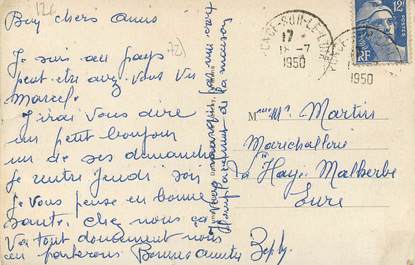 Bien chers amis
Je suis au pays
peut être avez vous vu
Marcel.
J'irai vous dire
un petit bonjour
un de ses dimanches
je rentre Jeudi soir
Je vous pense en bonne
santé, chez nous ça
va tout doucement nous
en parlerons Bonnes amitiés
l'emplacement de la maison
17
18-7
1950
1950
12F
RF
Mr Martin
Marechallerie
La Haye Malherbe
Eure